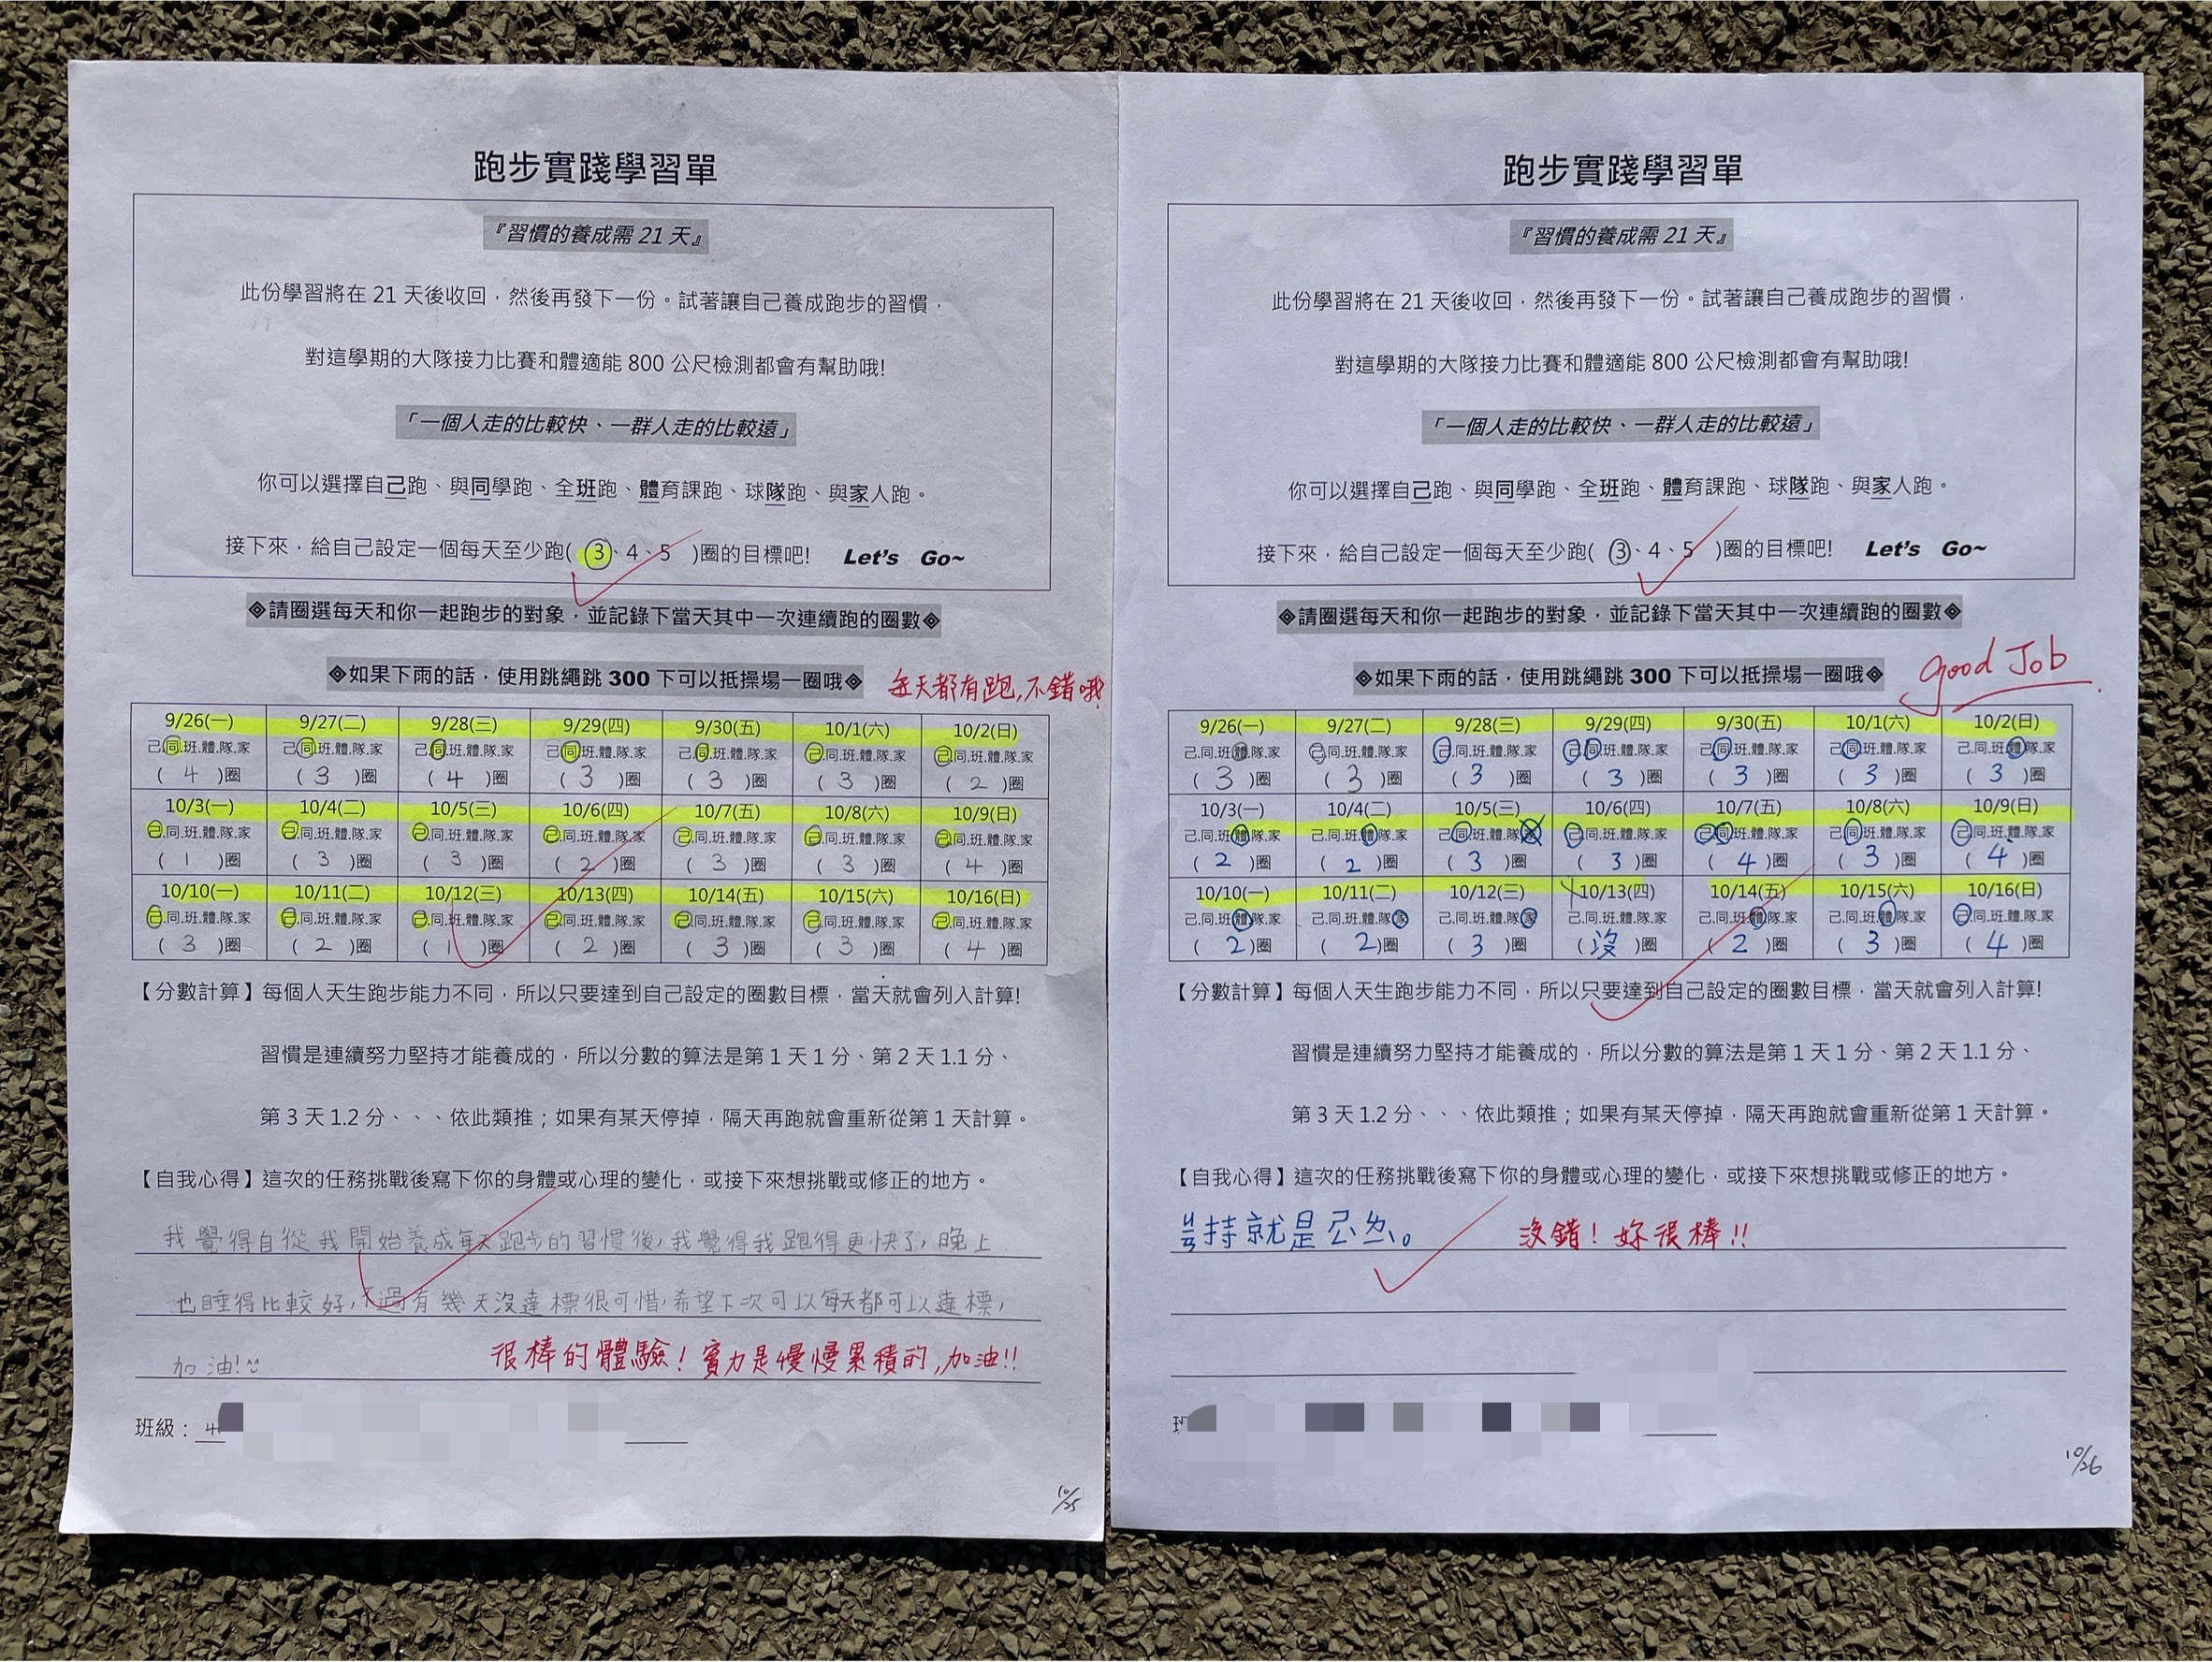 跑步實踐學習單
『習慣的養成需 21 天』
此份學習將在 21 天後收回，然後再發下一份。試著讓自己養成跑步的習慣，
對這學期的大隊接力比賽和體適能 800 公尺檢測都會有幫助哦!
「一個人走的比較快、一群人走的比較遠」
你可以選擇自己跑、與同學跑、全班跑、體育課跑、球隊跑、與家人跑。
接下來，給自己設定一個每天至少跑( 3、4、5 )圈的目標吧! Let's Go~
◈請圈選每天和你一起跑步的對象，並記錄下當天其中一次連續跑的圈數◈
◈如果下雨的話，使用跳繩跳 300 下可以抵操場一圈哦◈
每天都有跑,不錯哦!
9/26(一) 9/27(二) 9/28(三) 9/29(四) 9/30(五) 10/1(六) 10/2(日)
己.同.班.體.隊.家 己.同.班.體.隊.家 己.同.班.體.隊.家 己.同.班.體.隊.家 己.同.班.體.隊.家 己.同.班.體.隊.家 己.同.班.體.隊.家
( 4 )圈 ( 3 )圈 ( 4 )圈 ( 3 )圈 ( 3 )圈 ( 3 )圈 ( 2 )圈
10/3(一) 10/4(二) 10/5(三) 10/6(四) 10/7(五) 10/8(六) 10/9(日)
己.同.班.體.隊.家 己.同.班.體.隊.家 己.同.班.體.隊.家 己.同.班.體.隊.家 己.同.班.體.隊.家 己.同.班.體.隊.家 己.同.班.體.隊.家
( 1 )圈 ( 3 )圈 ( 3 )圈 ( 2 )圈 ( 3 )圈 ( 3 )圈 ( 4 )圈
10/10(一) 10/11(二) 10/12(三) 10/13(四) 10/14(五) 10/15(六) 10/16(日)
己.同.班.體.隊.家 己.同.班.體.隊.家 己.同.班.體.隊.家 己.同.班.體.隊.家 己.同.班.體.隊.家 己.同.班.體.隊.家 己.同.班.體.隊.家
( 3 )圈 ( 2 )圈 ( 1 )圈 ( 2 )圈 ( 3 )圈 ( 3 )圈 ( 4 )圈
【分數計算】每個人天生跑步能力不同，所以只要達到自己設定的圈數目標，當天就會列入計算!
習慣是連續努力堅持才能養成的，所以分數的算法是第 1 天 1 分、第 2 天 1.1 分、
第 3 天 1.2 分、、、依此類推；如果有某天停掉，隔天再跑就會重新從第 1 天計算。
【自我心得】這次的任務挑戰後寫下你的身體或心理的變化，或接下來想挑戰或修正的地方。
我覺得自從我開始養成每天跑步的習慣後,我覺得我跑得更快了,晚上
也睡得比較好,不過有幾天沒達標很可惜,希望下次可以每天都可以達標,
加油!
很棒的體驗! 實力是慢慢累積的,加油!!
班級：4
10/25
跑步實踐學習單
『習慣的養成需 21 天』
此份學習將在 21 天後收回，然後再發下一份。試著讓自己養成跑步的習慣，
對這學期的大隊接力比賽和體適能 800 公尺檢測都會有幫助哦!
「一個人走的比較快、一群人走的比較遠」
你可以選擇自己跑、與同學跑、全班跑、體育課跑、球隊跑、與家人跑。
接下來，給自己設定一個每天至少跑( 3、4、5 )圈的目標吧! Let's Go~
◈請圈選每天和你一起跑步的對象，並記錄下當天其中一次連續跑的圈數◈
◈如果下雨的話，使用跳繩跳 300 下可以抵操場一圈哦◈
good Job
9/26(一) 9/27(二) 9/28(三) 9/29(四) 9/30(五) 10/1(六) 10/2(日)
己.同.班.體.隊.家 己.同.班.體.隊.家 己.同.班.體.隊.家 己.同.班.體.隊.家 己.同.班.體.隊.家 己.同.班.體.隊.家 己.同.班.體.隊.家
( 3 )圈 ( 3 )圈 ( 3 )圈 ( 3 )圈 ( 3 )圈 ( 3 )圈 ( 3 )圈
10/3(一) 10/4(二) 10/5(三) 10/6(四) 10/7(五) 10/8(六) 10/9(日)
己.同.班.體.隊.家 己.同.班.體.隊.家 己.同.班.體.隊.家 己.同.班.體.隊.家 己.同.班.體.隊.家 己.同.班.體.隊.家 己.同.班.體.隊.家
( 2 )圈 ( 2 )圈 ( 3 )圈 ( 3 )圈 ( 4 )圈 ( 3 )圈 ( 4 )圈
10/10(一) 10/11(二) 10/12(三) 10/13(四) 10/14(五) 10/15(六) 10/16(日)
己.同.班.體.隊.家 己.同.班.體.隊.家 己.同.班.體.隊.家 己.同.班.體.隊.家 己.同.班.體.隊.家 己.同.班.體.隊.家 己.同.班.體.隊.家
( 2 )圈 ( 2 )圈 ( 3 )圈 ( 沒 )圈 ( 2 )圈 ( 3 )圈 ( 4 )圈
【分數計算】每個人天生跑步能力不同，所以只要達到自己設定的圈數目標，當天就會列入計算!
習慣是連續努力堅持才能養成的，所以分數的算法是第 1 天 1 分、第 2 天 1.1 分、
第 3 天 1.2 分、、、依此類推；如果有某天停掉，隔天再跑就會重新從第 1 天計算。
【自我心得】這次的任務挑戰後寫下你的身體或心理的變化，或接下來想挑戰或修正的地方。
持就是ㄕㄥˋㄌㄧˋ。
沒錯! 妳很棒!!
10/26